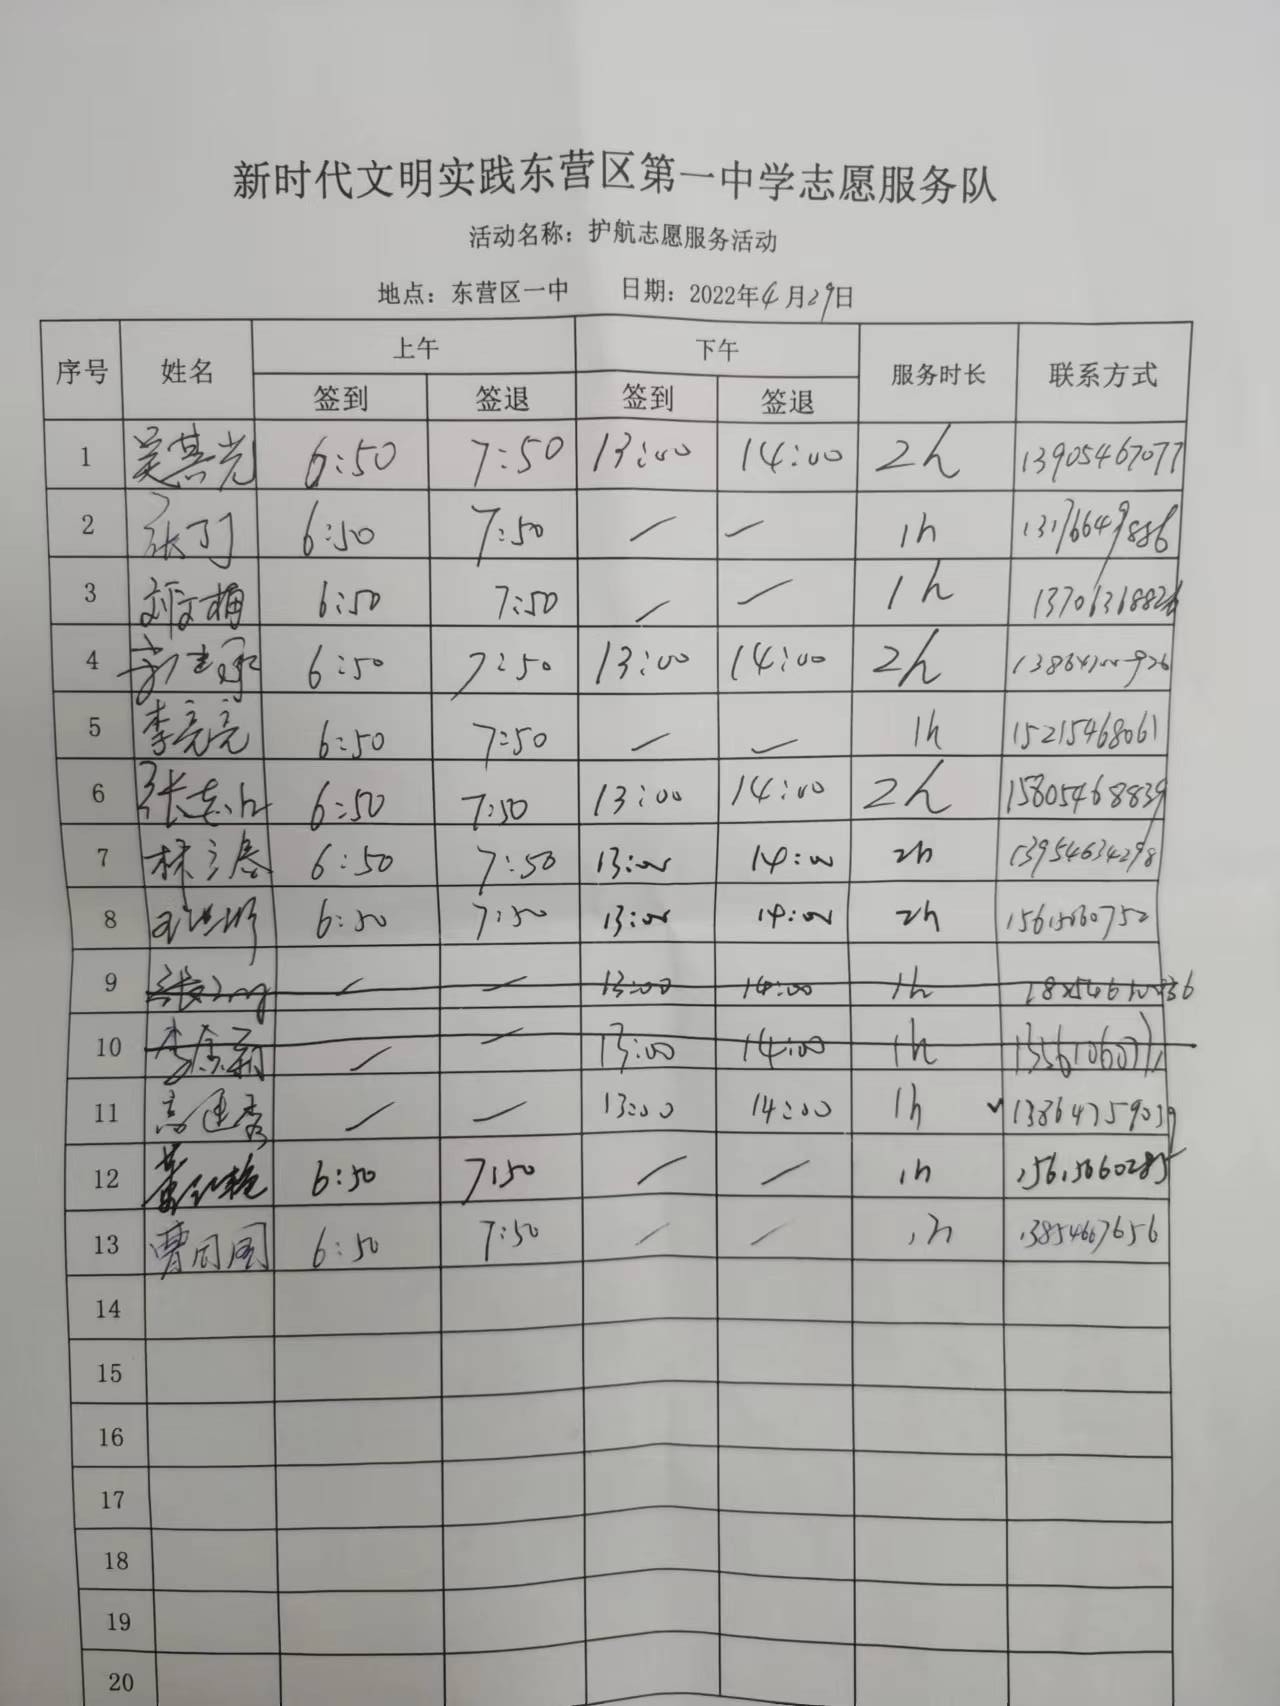 新时代文明实践东营区第一中学志愿服务队
活动名称：护航志愿服务活动
地点：东营区一中 日期：2022年4月29日
序号 姓名 上午 下午 服务时长 联系方式
签到 签退 签到 签退
1 吴其光 6:50 7:50 13:00 14:00 2h 13905467077
2 张丁丁 6:50 7:50 — — 1h
3 邓文梅 6:50 7:50 — — 1h
4 6:50 7:50 13:00 14:00 2h
5 李亮亮 6:50 7:50 — — 1h 15215468061
6 6:50 7:50 13:00 14:00 2h 15805468839
7 林立春 6:50 7:50 13:00 14:00 2h 13954634298
8 6:50 7:50 13:00 14:00 2h
9 — — 13:00 14:00 1h
10 — — 13:00 14:00 1h
11 高连秀 — — 13:00 14:00 1h 13864759039
12 6:50 7:50 — — 1h 15615660285
13 6:50 7:50 — — 1h
14
15
16
17
18
19
20